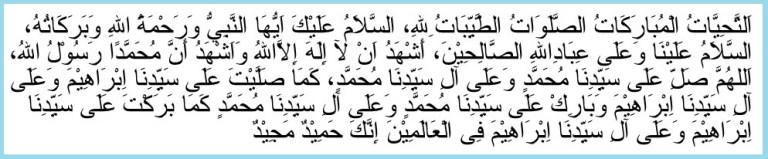 اَلتَّحِيَّاتُ الْمُبَارَكَاتُ الصَّلَوَاتُ الطَّيِّبَاتُ لِلهِ، السَّلاَمُ عَلَيْكَ اَيُّهَا النَّبِيُّ وَرَحْمَةُ اللهِ وَبَرَكَاتُهُ،
السَّلاَمُ عَلَيْنَا وَعَلَى عِبَادِاللهِ الصَّالِحِيْنَ، أَشْهَدُ اَنْ لاَ إِلَهَ إِلاَّاللهُ وَاَشْهَدُ اَنَّ مُحَمَّدًا رَسُوْلُ اللهُ،
اَللهُمَّ صَلِّ عَلَى سَيِّدِنَا مُحَمَّدٍ وَعَلَى آلِ سَيِّدِنَا مُحَمَّدٍ، كَمَا صَلَّيْتَ عَلَى سَيِّدِنَا اِبْرَاهِيْمَ وَعَلَى
آلِ سَيِّدِنَا اِبْرَاهِيْمَ وَبَارِكْ عَلَى سَيِّدِنَا مُحَمَّدٍ وَعَلَى آلِ سَيِّدِنَا مُحَمَّدٍ كَمَا بَرَكْتَ عَلَى سَيِّدِنَا
اِبْرَاهِيْمَ وَعَلَى آلِ سَيِّدِنَا اِبْرَاهِيْمَ فِى الْعَالَمِيْنَ إِنَّكَ حَمِيْدٌ مَجِيْدٌ